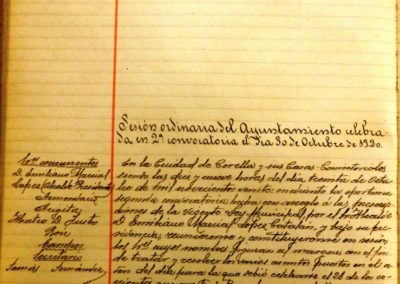 Sesión ordinaria del Ayuntamiento celebra
da en 2ª convocatoria el dia 30 de Octubre de 1920.
Sres concurrentes
D. Emiliano Marcial
Lopez Alcalde Presidente
Tomás Fernández
En la Ciudad de Corella y sus Casas Consistoriales
siendo las diez y nueve horas del dia treinta de Octu
bre de mil novecientos veinte: mediante la oportuna
segunda convocatoria hecha con arreglo á las prescripc
ciones de la vigente Ley Municipal por el Sr Alcalde
D. Emiliano Marcial Lopez Catalan, y bajo su pre
sidencia, reunieronse y constituyeronse en sesion
los Sres cuyos nombres figuran al margen con el fin
de tratar y resolver los varios asuntos puestos en el or
den del dia para la que debió celebrarse el